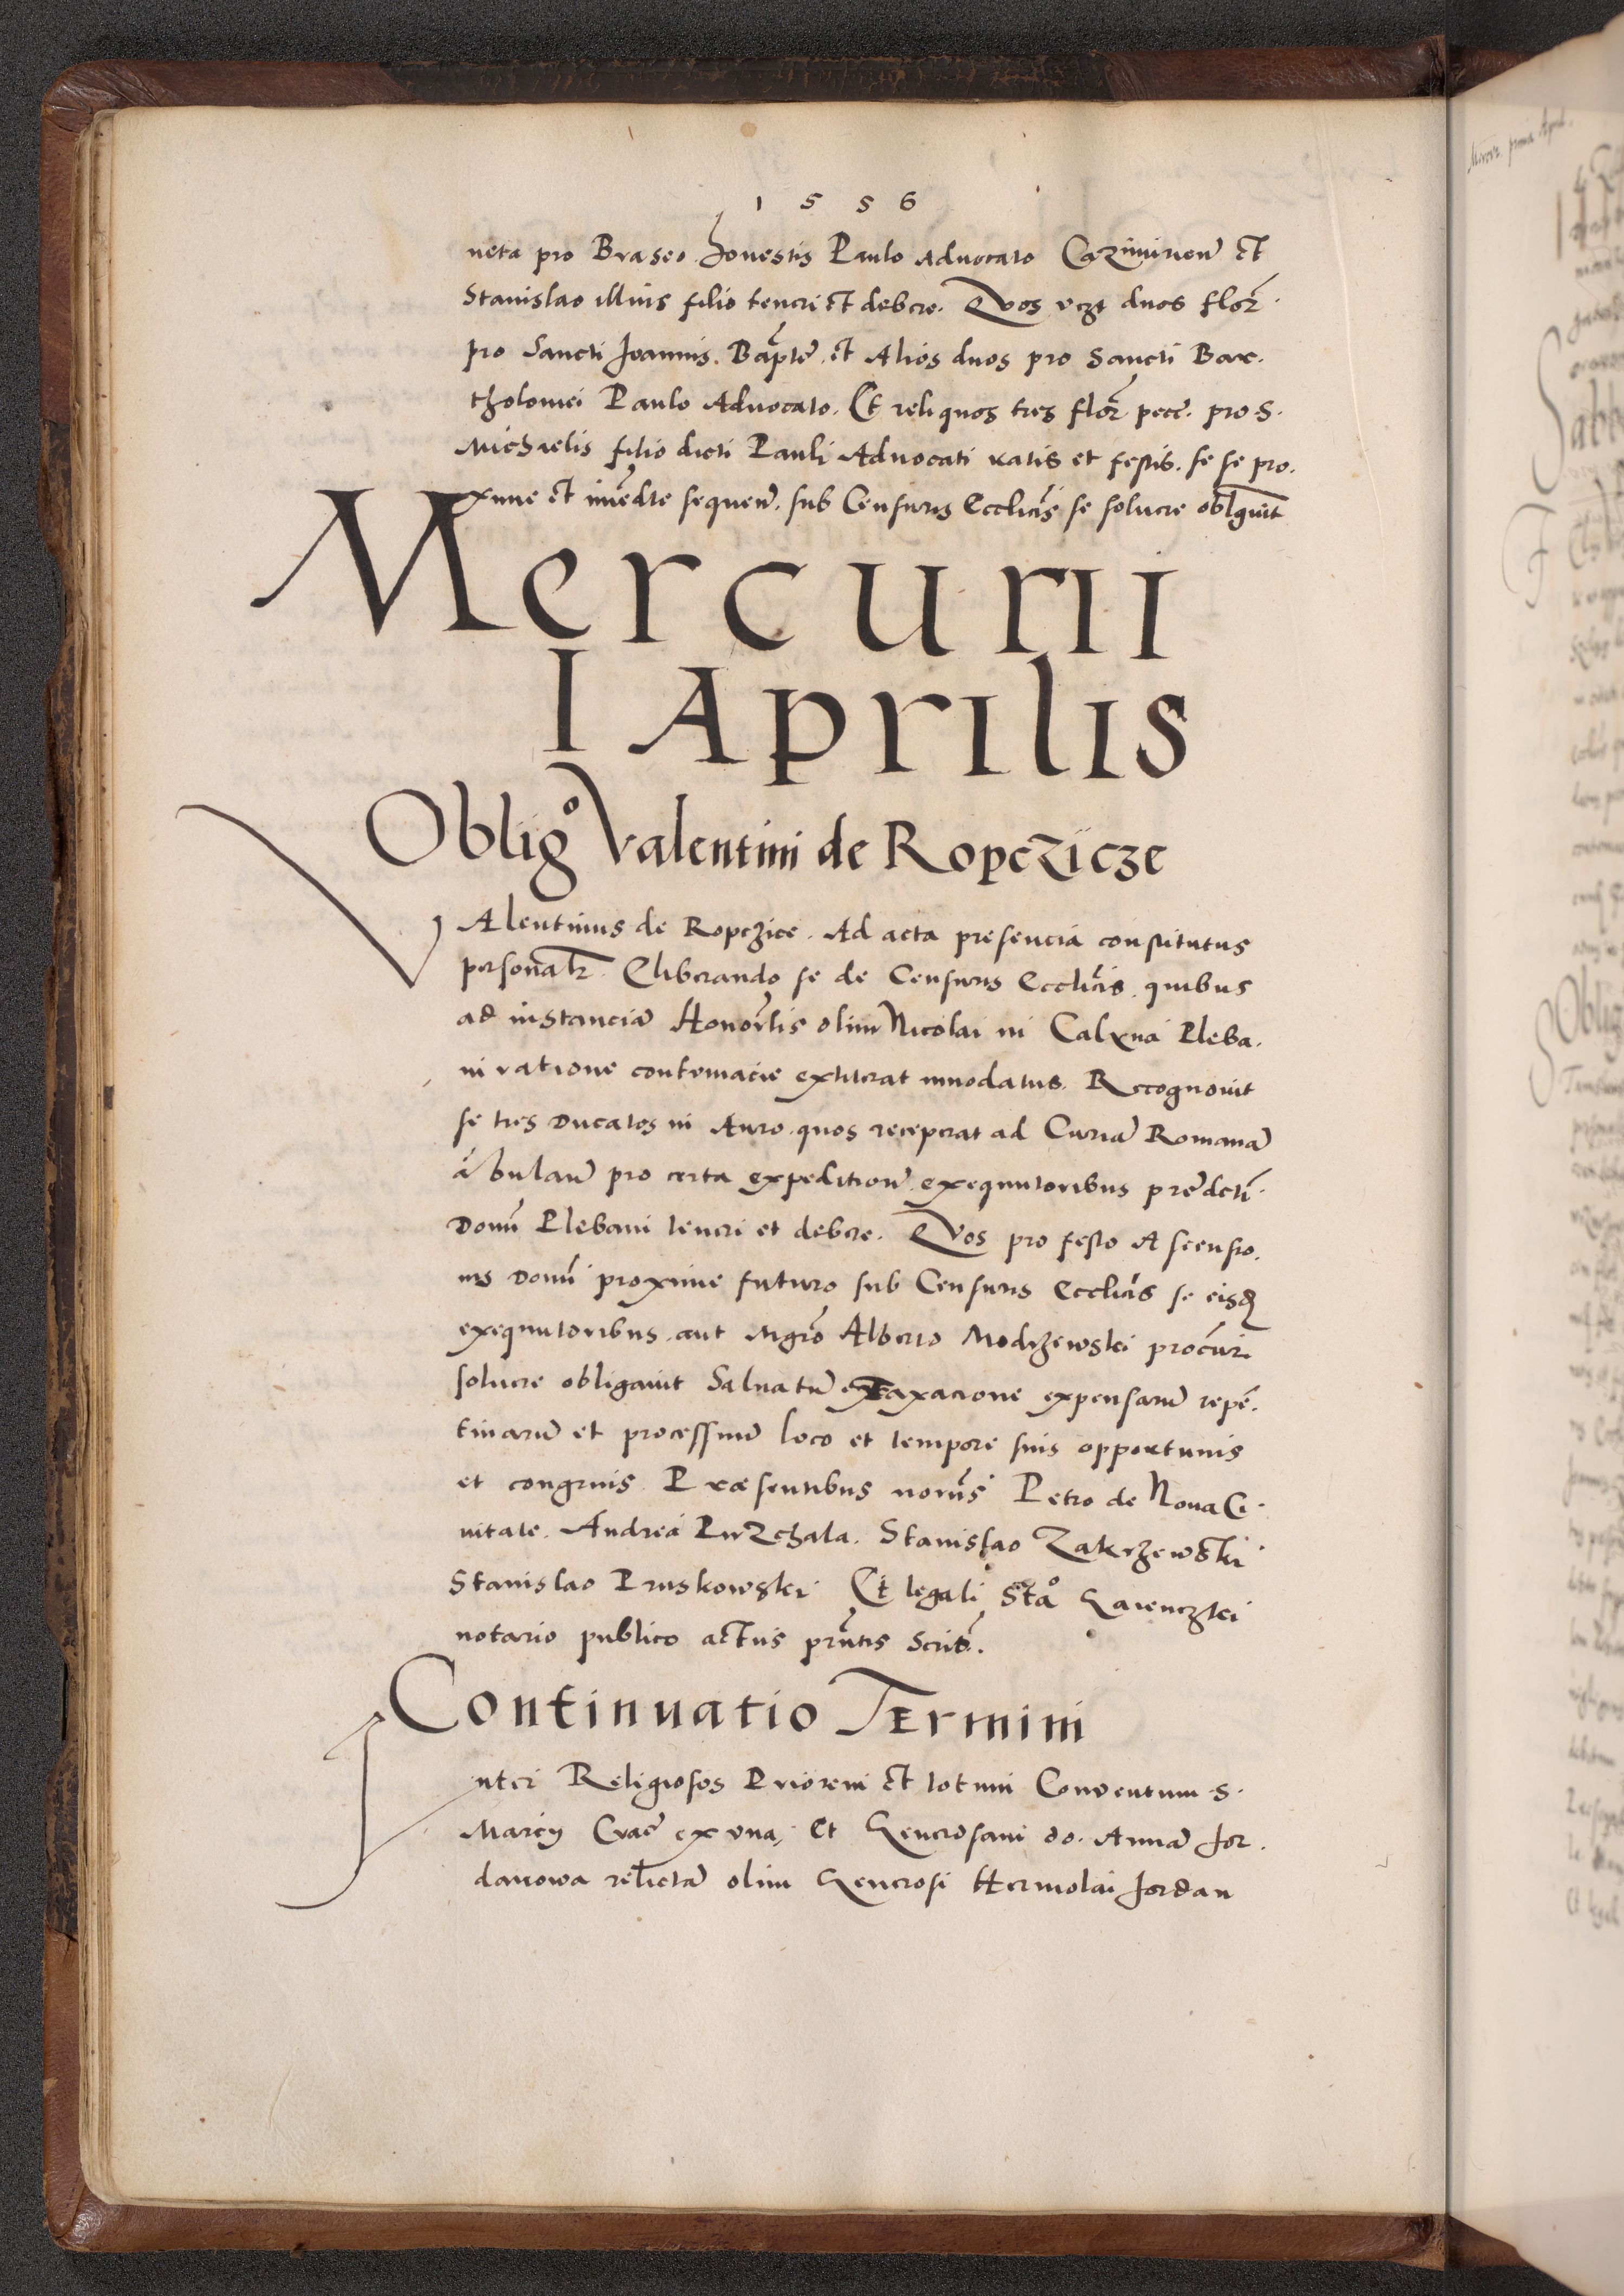 1 5 5 6
neta pro Braseo Honestis Paulo Advocato Cazimirien et
Stanislao illius filio teneri et debere. Quos vczt duos flor
pro Sancti Joannis. Bapte. et Alios duos pro Sancti Bar.
tholomei Paulo Advocato. Et reliquos tres flor pecc. pro S.
Michaelis filio dicti Pauli Advocati ratis et festis. se se pro.
xime et immedte sequen. sub Censuris Ecclicis se soluere obligauit
Mercurii
I Aprilis
Obligo Valentini de Ropcziicze
VAlentinus de Ropczice. Ad acta presencia constitutus
personalr. Eliberando se de Censuris Ecclicis. quibus
ad instancia Honorlis olim Nicolai in Calxna Pleba.
ni ratione contumacie extiterat innodatus. Recognouit
se tres Ducatos in Auro quos receperat ad Curia Romana
abulan pro certa expedition exequutoribus predcti.
Domi Plebani teneri et debere. Quos pro festo Ascensio.
nis Domi proxime futuro sub Censuris Ecclicis se eisd
exequutoribus aut Mgro Alberto Modrzewski procuri
soluere obligauit Saluatu taxacione expensaru repe.
tinaru et processuu loco et tempore suis opportunis
et congruis Praesentibus Petro de Noua Ci.
uitate. Andrea Purzchala. Stanislao Zakrzewski
Stanislao Pruskowski Et legali Stao Gaienczki
notario publico actus prntis Scrib.
Continuatio Termini
Inter Religiosos Priorem et totum Conventum S.
Marci Crac ex vna, Et Generosam do. Anna Jor.
danowa relicta olim Generosi Hermolai Jordan